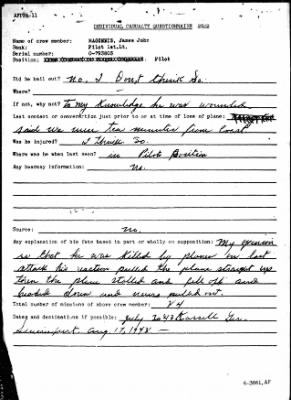 INDIVIDUAL CASUALTY QUESTIONNAIRE
Name of crew member: MAGINNIS, James John
Rank: Pilot 1st.Lt.
Serial number:
Position: Pilot
Did he bail out? no, I Dont think So.
Where?
If not, why not? To my knowledge he was wounded
Last contact or conversation just prior to or at time of loss of plane:
said we were ten minutes from Coast
Was he injured? I think So.
Where was he when last seen? in Pilot Position
Any hearsay information: no.
Source: no.
Any explanation of his fate based in part or wholly on supposition: My opinion
is that he was killed by planes on last
attack his reaction pulled the plane straight up
then the plane stalled and fell off and
headed down and never pulled out.
Total number of missions of above crew member:
Dates and destination if possible: July
Aug. 17,